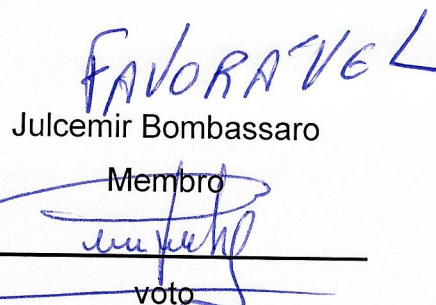 FAVORÁVEL
Julcemir Bombassaro
Membro
voto